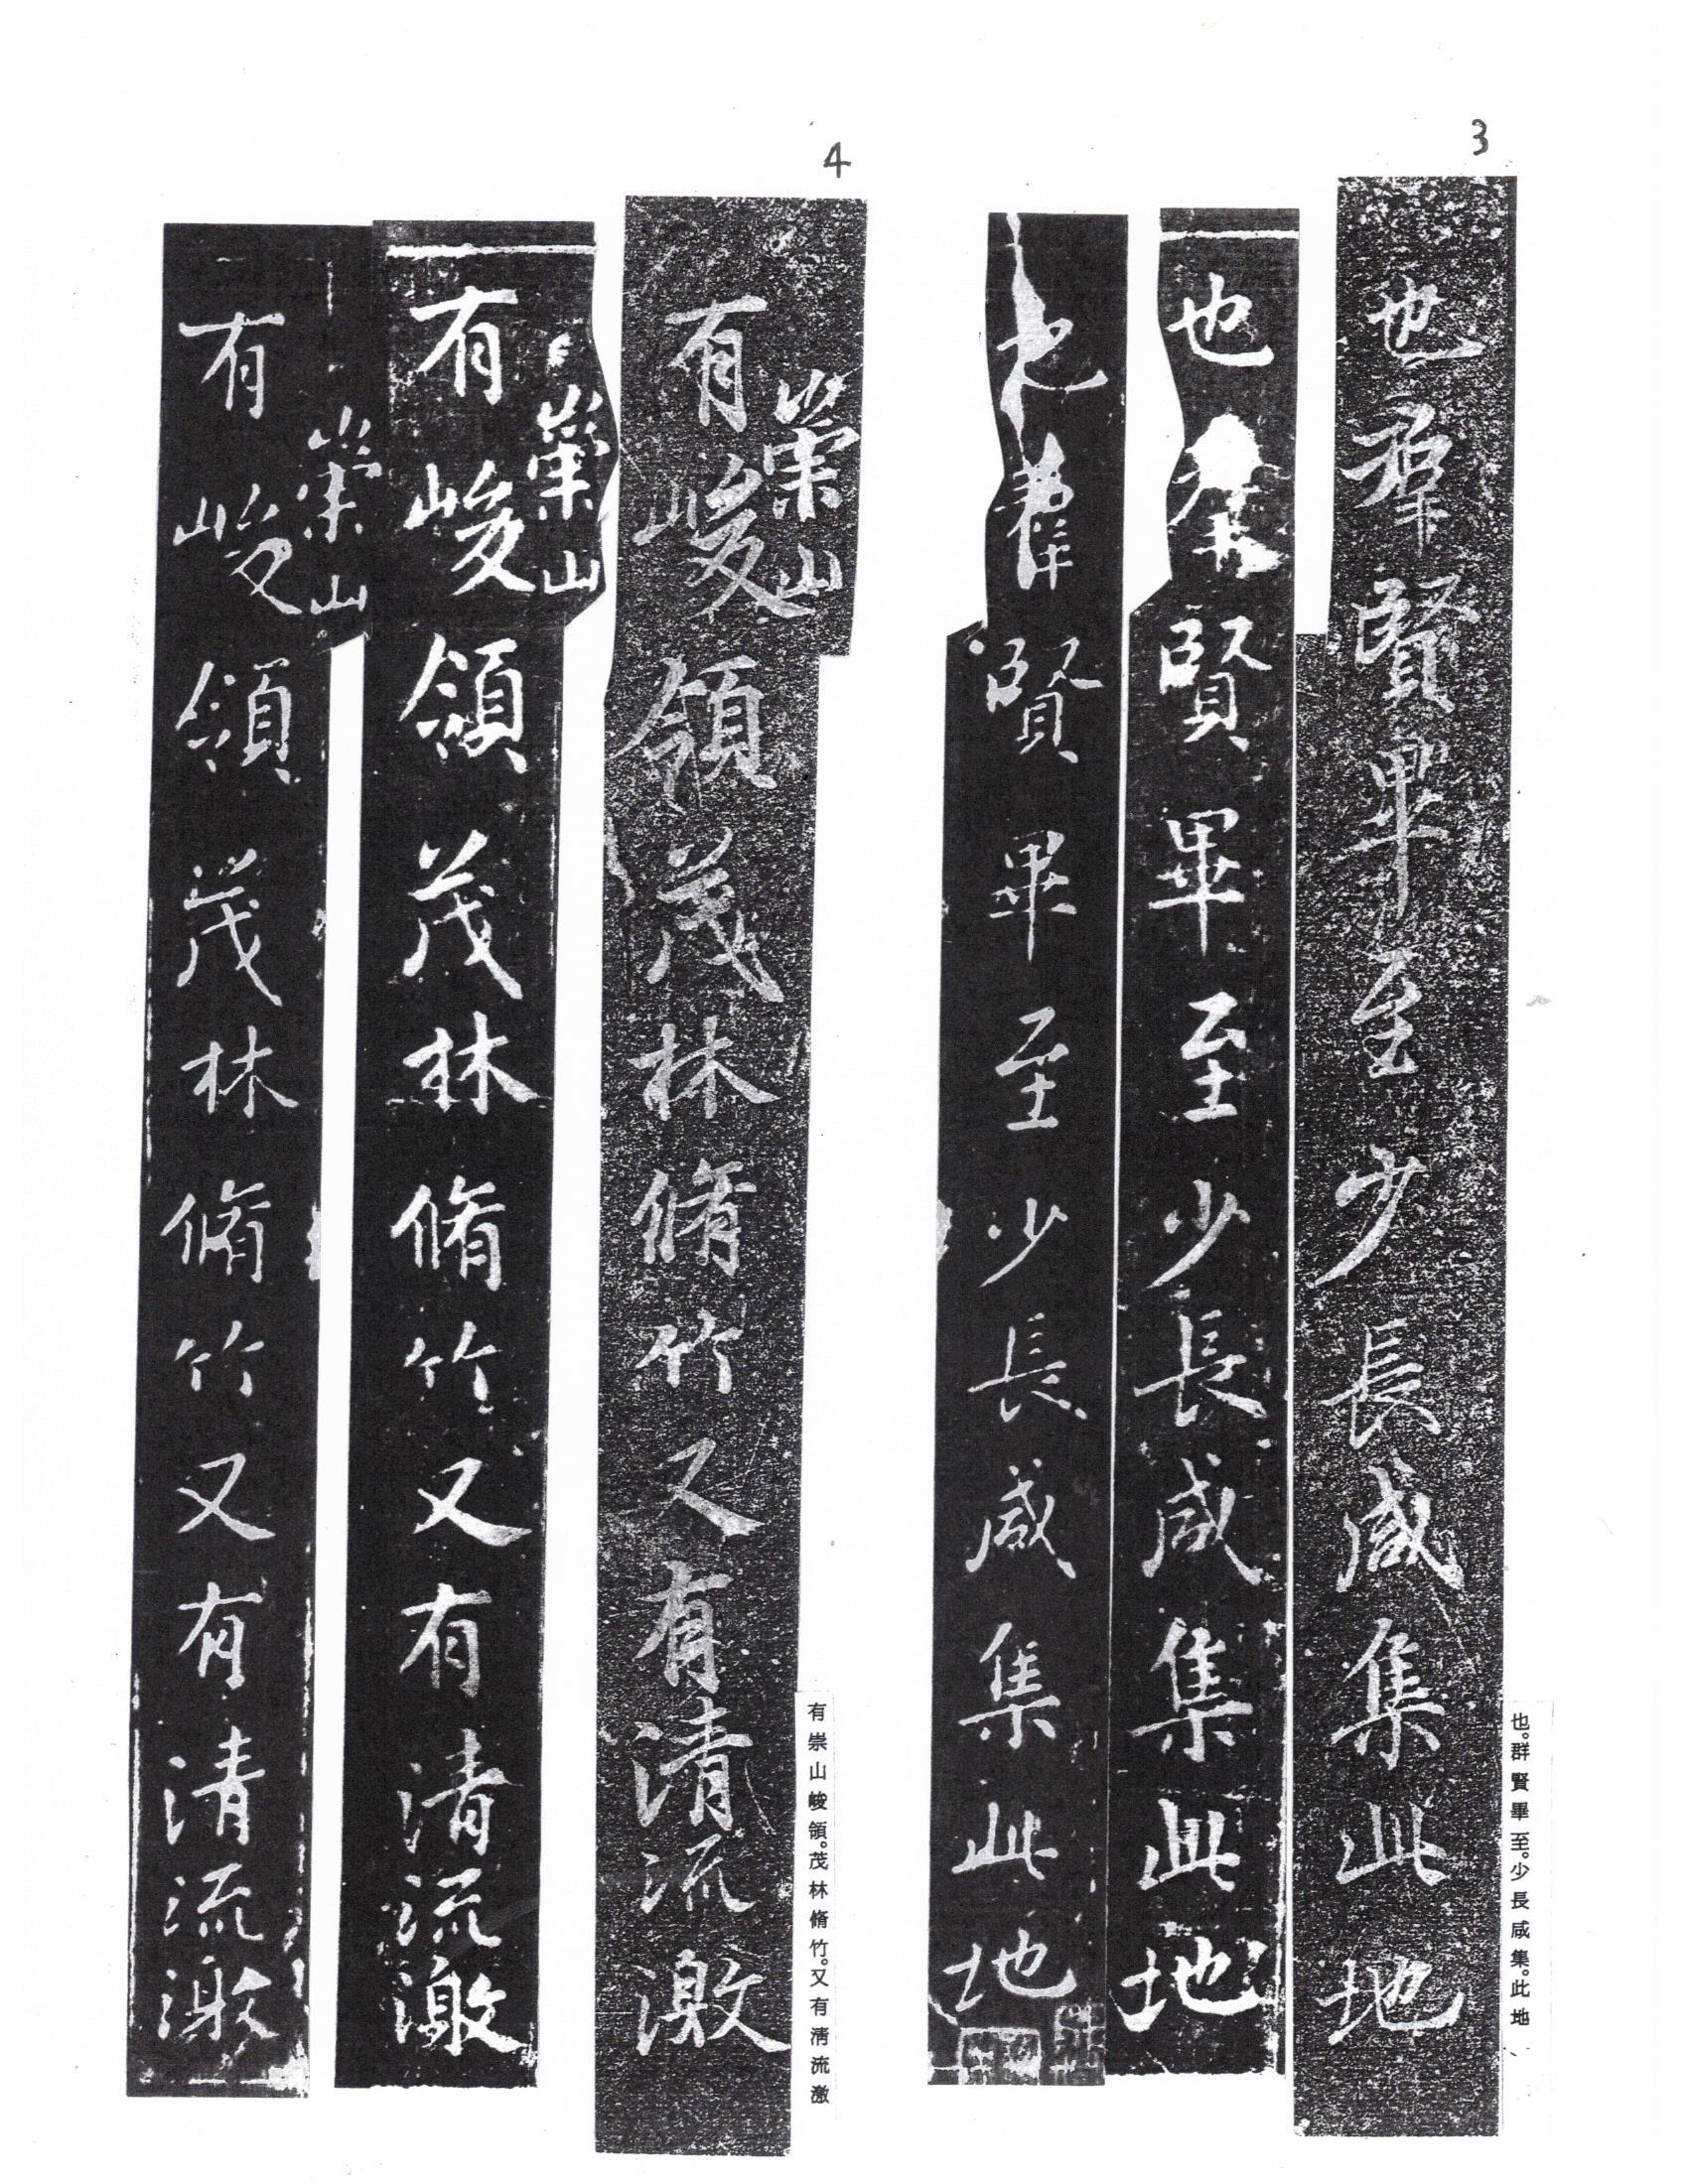 3
也群賢畢至少長咸集此地
也。群賢畢至。少長咸集。此地
也群賢畢至少長咸集此地
也羣賢畢至少長咸集此地
4
有崇山峻領茂林脩竹又有清流激
有崇山峻領。茂林脩竹。又有清流激
有崇山峻領茂林脩竹又有清流激
有崇山峻領茂林脩竹又有清流激